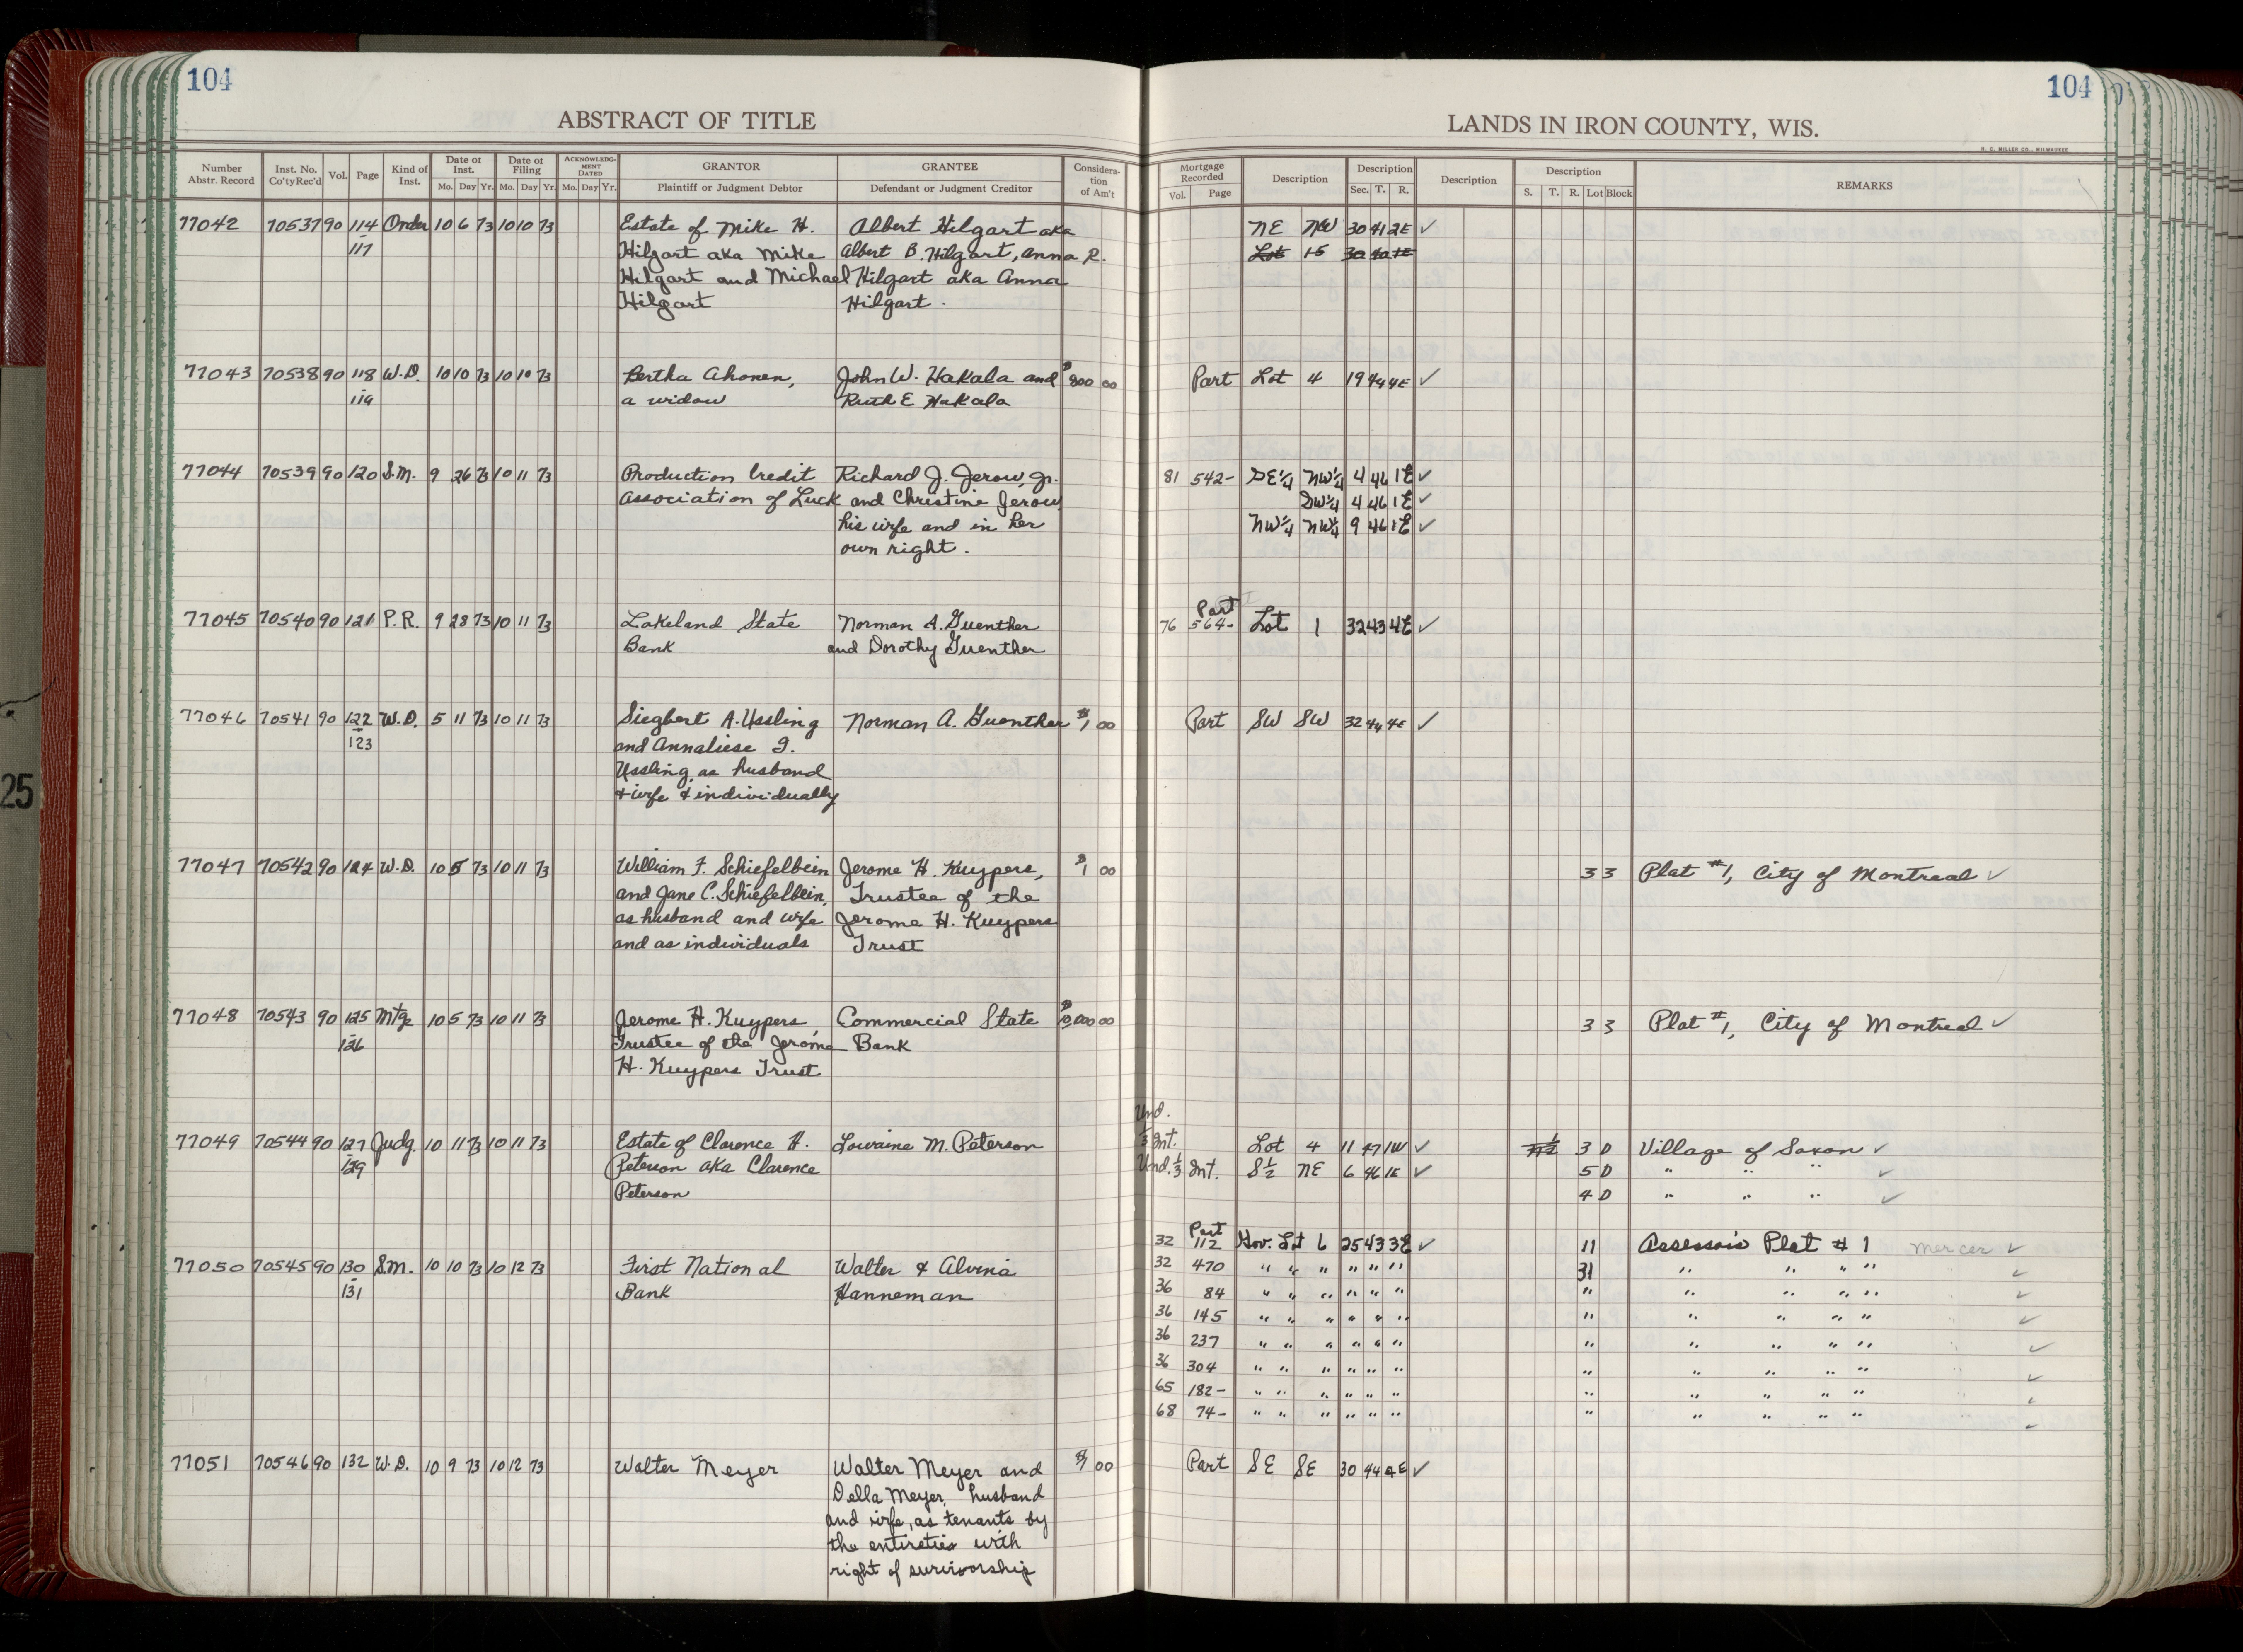 104
104
ABSTRACT OF TITLE
LANDS IN IRON COUNTY, WIS.
H. C. MILLER CO., MILWAUKEE
Number Abstr. Record Inst. No. Co'ty Rec'd Vol. Page Kind of Inst. Date of Inst. Mo. Day Yr. Date of Filing Mo. Day Yr. ACKNOWLEDGMENT DATED Mo. Day Yr. GRANTOR Plaintiff or Judgment Debtor GRANTEE Defendant or Judgment Creditor Consideration of Am't Mortgage Recorded Vol. Page Description Description Sec. T. R. Description Description S. T. R. Lot Block REMARKS
77042 70537 90 114 Order 10 6 73 10 10 73 Estate of Mike H. Albert Hilgart aka NE NW 30 41 2E ✓
117 Hilgart aka Mike Albert B. Hilgart, Anna R. Lot 15
Hilgart and Michael Hilgart aka Anna
Hilgart Hilgart.
77043 70538 90 118 W.D. 10 10 73 10 10 73 Bertha Ahonen, John W. Hakala and $800 00 Part Lot 4 19 44 4E ✓
119 a widow Ruth E Hakala
77044 70539 90 120 S.M. 9 26 73 10 11 73 Production Credit Richard J. Jerow, Jr. 81 542- SE¼ NW¼ 4 46 1E ✓
Association of Luck and Christine Jerow SW¼ 4 46 1E ✓
his wife and in her NW¼ NW¼ 9 46 1E ✓
own right.
Part
77045 70540 90 121 P.R. 9 28 73 10 11 73 Lakeland State Norman A. Guenther 76 564- Lot 1 32 43 4E ✓
Bank and Dorothy Guenther
77046 70541 90 122 W.D. 5 11 73 10 11 73 Siegbert A. Ussling Norman A. Guenther $1 00 Part SW SW 32 44 4E ✓
123 and Annaliese I.
Ussling, as husband
& wife & individually
25
77047 70542 90 124 W.D. 10 5 73 10 11 73 William F. Schiefelbein Jerome H. Kuypers, $1 00 3 3 Plat #1, City of Montreal ✓
and Jane C. Schiefelbein, Trustee of the
as husband and wife Jerome H. Kuypers
and as individuals Trust
77048 70543 90 125 Mtg 10 5 73 10 11 73 Jerome H. Kuypers, Commercial State 3 3 Plat #1, City of Montreal ✓
126 Trustee of the Jerome Bank
H. Kuypers Trust
Und.
77049 70544 90 127 Judg. 10 11 73 10 11 73 Estate of Clarence H. Lorraine M. Peterson ⅓ Int. Lot 4 11 47 1W ✓ 3 D Village of Saxon ✓
129 Peterson aka Clarence Und. ⅓ Int. S½ NE 6 46 1E ✓ 5 D " " " ✓
Peterson 4 D " " " ✓
Part
32 112 Gov. Lot 6 25 43 3E ✓ 11 Assessor's Plat #1 Mercer ✓
77050 70545 90 130 S.M. 10 10 73 10 12 73 First National Walter & Alvina 32 470 " " " " " " 31 " " " " ✓
131 Bank Hanneman 36 84 " " " " " " " " " " " ✓
36 145 " " " " " " " " " " " ✓
36 237 " " " " " " " " " " " ✓
36 304 " " " " " " " " " " " ✓
65 182- " " " " " " " " " " " ✓
68 74- " " " " " " " " " " " ✓
77051 70546 90 132 W.D. 10 9 73 10 12 73 Walter Meyer Walter Meyer and $1 00 Part SE SE 30 44 4E ✓
Della Meyer, husband
and wife, as tenants by
the entireties with
right of survivorship